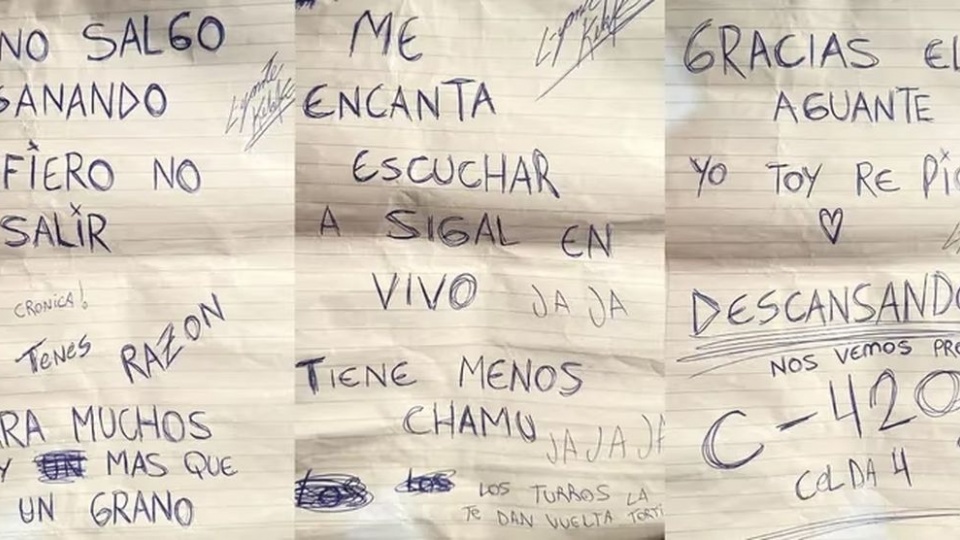 NO SALGO
GANANDO
FIERO NO
SALIR
CRONICA!
TENES RAZON
RA MUCHOS
Y UN MAS QUE
UN GRANO
ME
ENCANTA
ESCUCHAR
A SIGAL EN
VIVO JA JA
TIENE MENOS
CHAMU JA JA JA
LOS LOS LOS TURROS LA
TE DAN VUELTA TORTI
GRACIAS EL
AGUANTE
YO TOY RE PIC
DESCANSANDO
NOS VEMOS PRO
C-420
CELDA 4